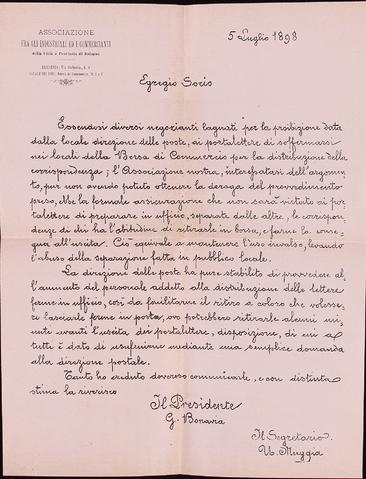 ASSOCIAZIONE
FRA GLI INDUSTRIALI ED I COMMERCIANTI
della Città e Provincia di Bologna
5 Luglio 1898
Egregio Socio
Essendosi diversi negozianti lagnati per la proibizione data
dalla locale direzione delle poste, ai portalettere di soffermarsi
nei locali della Borsa di Commercio per la distribuzione della
corrispondenza; l'Associazione nostra, interessatasi dell'argomen-
to, pur non avendo potuto ottenere la deroga del provvedimento
preso, ebbe la formale assicurazione che non sarà vietato ai por-
talettere di preparare in ufficio, separate dalle altre, le corrispon-
denze di chi ha l'abitudine di ritirarle in borsa, e farne la conse-
gna all'uscita. Ciò equivale a mantenere l'uso invalso, levando
l'abuso della separazione fatta in pubblico locale.
La direzione delle poste ha pure stabilito di provvedere al-
l'aumento del personale addetto alla distribuzione delle lettere
ferme in ufficio, così da facilitarne il ritiro a coloro che volesse-
ro lasciarle ferme in posta, ove potrebbero ritirarle alcuni mi-
nuti avanti l'uscita dei portalettere, disposizione, di cui a
tutti è dato di usufruirne mediante una semplice domanda
alla direzione postale.
Tanto ho creduto doveroso comunicarle, e con distinta
stima la riverisco
Il Presidente
G. Bonavia
Il Segretario
U. Muggia